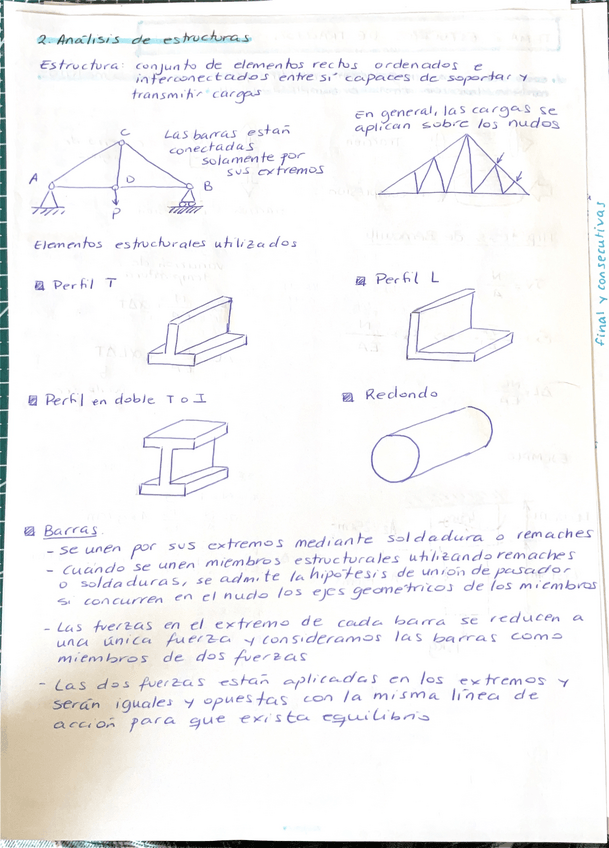 2. Análisis de estructuras
Estructura: conjunto de elementos rectos ordenados e
interconectados entre si capaces de soportar y
transmitir cargas
Las barras están
conectadas
solamente por
sus extremos
En general, las cargas se
aplican sobre los nudos
C
A
D
B
P
Elementos estructurales utilizados
Perfil T
Perfil L
Perfil en doble T o I
Redondo
Barras
- se unen por sus extremos mediante soldadura o remaches
- Cuando se unen miembros estructurales utilizando remaches
o soldaduras, se admite la hipótesis de unión de pasador
si concurren en el nudo los ejes geométricos de los miembros
- Las fuerzas en el extremo de cada barra se reducen a
una única fuerza y consideramos las barras como
miembros de dos fuerzas
- Las dos fuerzas están aplicadas en los extremos y
serán iguales y opuestas con la misma línea de
acción para que exista equilibrio
final y consecutivas